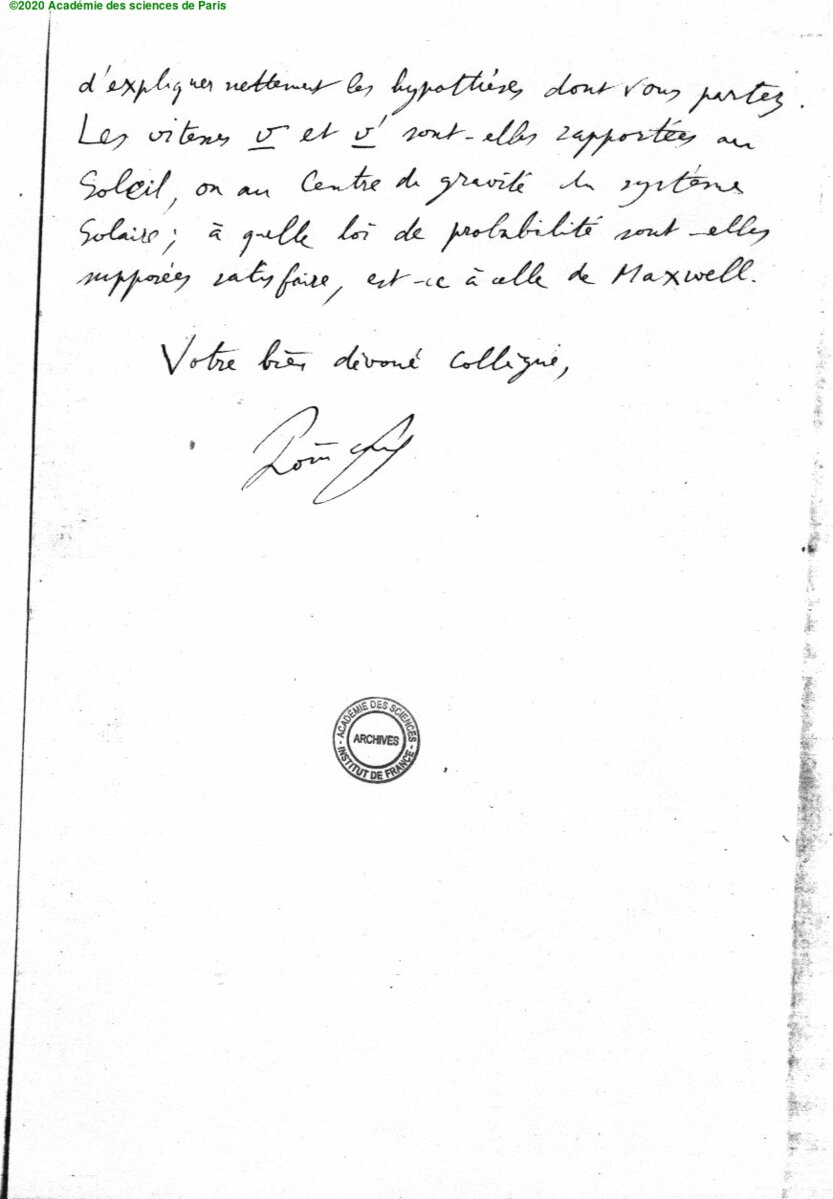 ©2020 Académie des sciences de Paris
d'expliquer nettement les hypothèses dont vous partez.
Les vitesses v et v' sont-elles rapportées au
Soleil, ou au Centre de gravité du système
Solaire; à quelle loi de probabilité sont-elles
supposées satisfaire, est-ce à celle de Maxwell.
Votre bien dévoué collègue,
Poincaré
ACADÉMIE DES SCIENCES
ARCHIVES
INSTITUT DE FRANCE